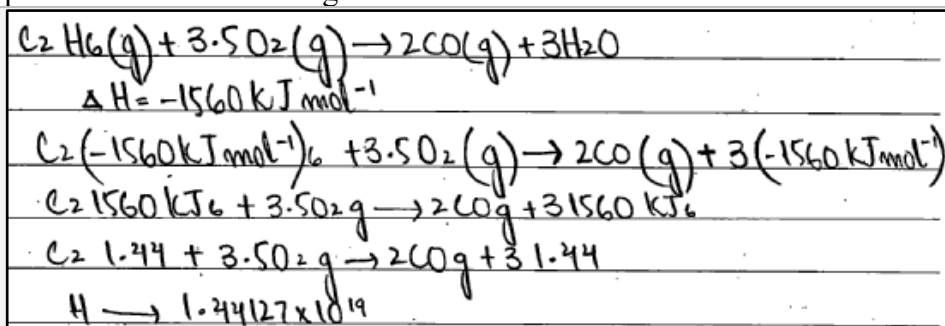 C2 H6(g) + 3.5O2(g) → 2CO(g) + 3H2O
Δ H = -1560 kJ mol-1
C2(-1560 kJ mol-1)6 + 3.5O2(g) → 2CO(g) + 3(-1560 kJ mol-1)
C2 1560 kJ6 + 3.5O2g → 2COg + 31560 kJ6
C2 1.44 + 3.5O2g → 2COg + 3 1.44
H → 1.44127 x 10^19